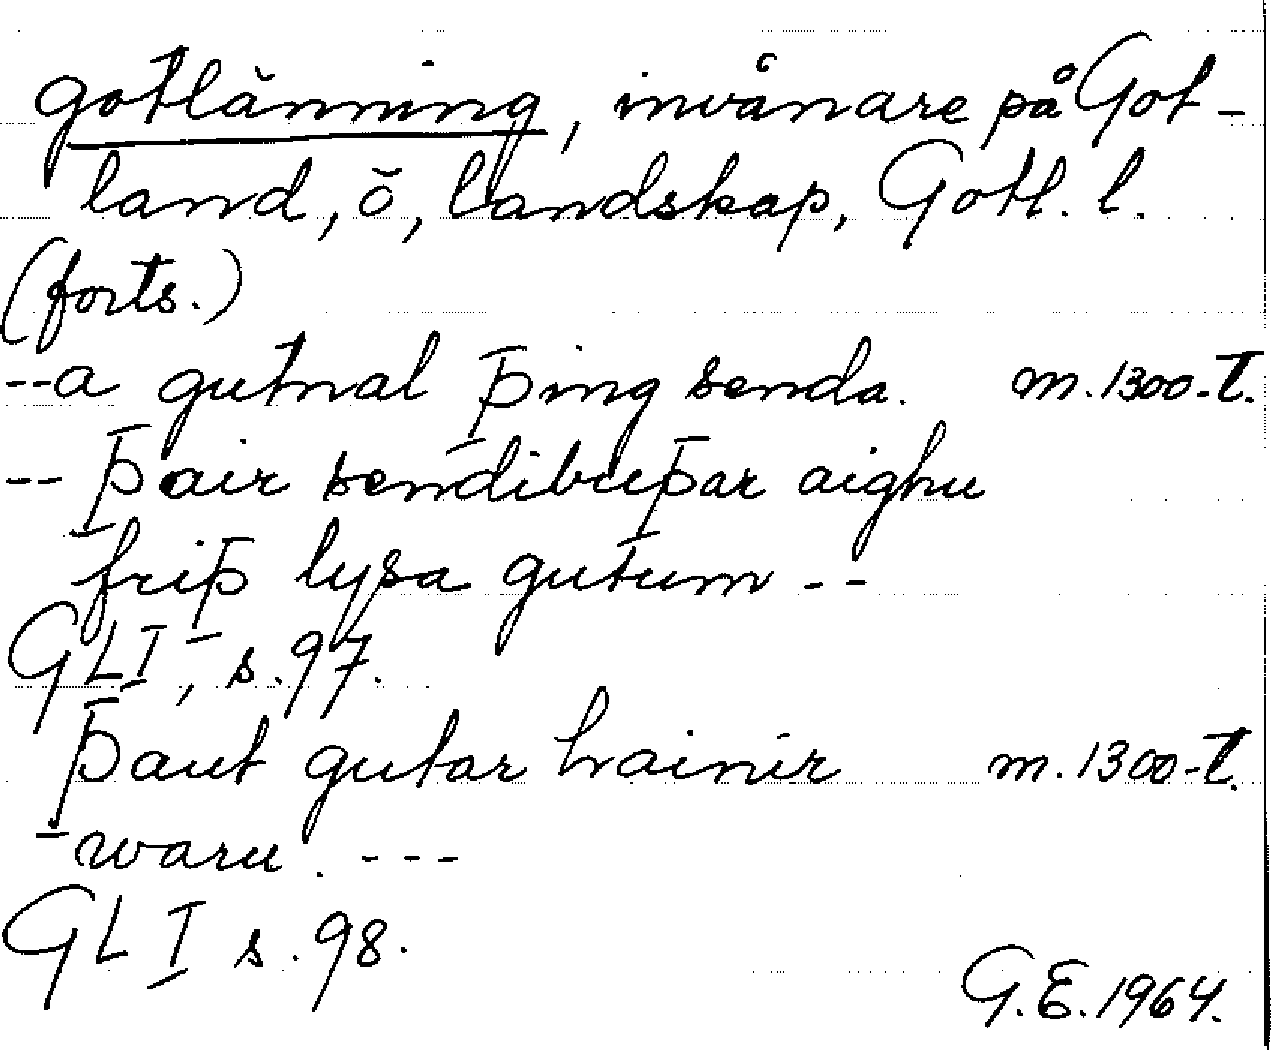 gotlänning, invånare på Got-
land, ö, landskap, Gotl. l.
(forts.)
--a gutnal þing senda. m. 1300-t.
-- þair sendibuþar aighu
friþ lysa gutum --
GLI, s. 97.
þaut gutar hainir m. 1300-t.
waru. ---
GL I s. 98.
G.E. 1964.